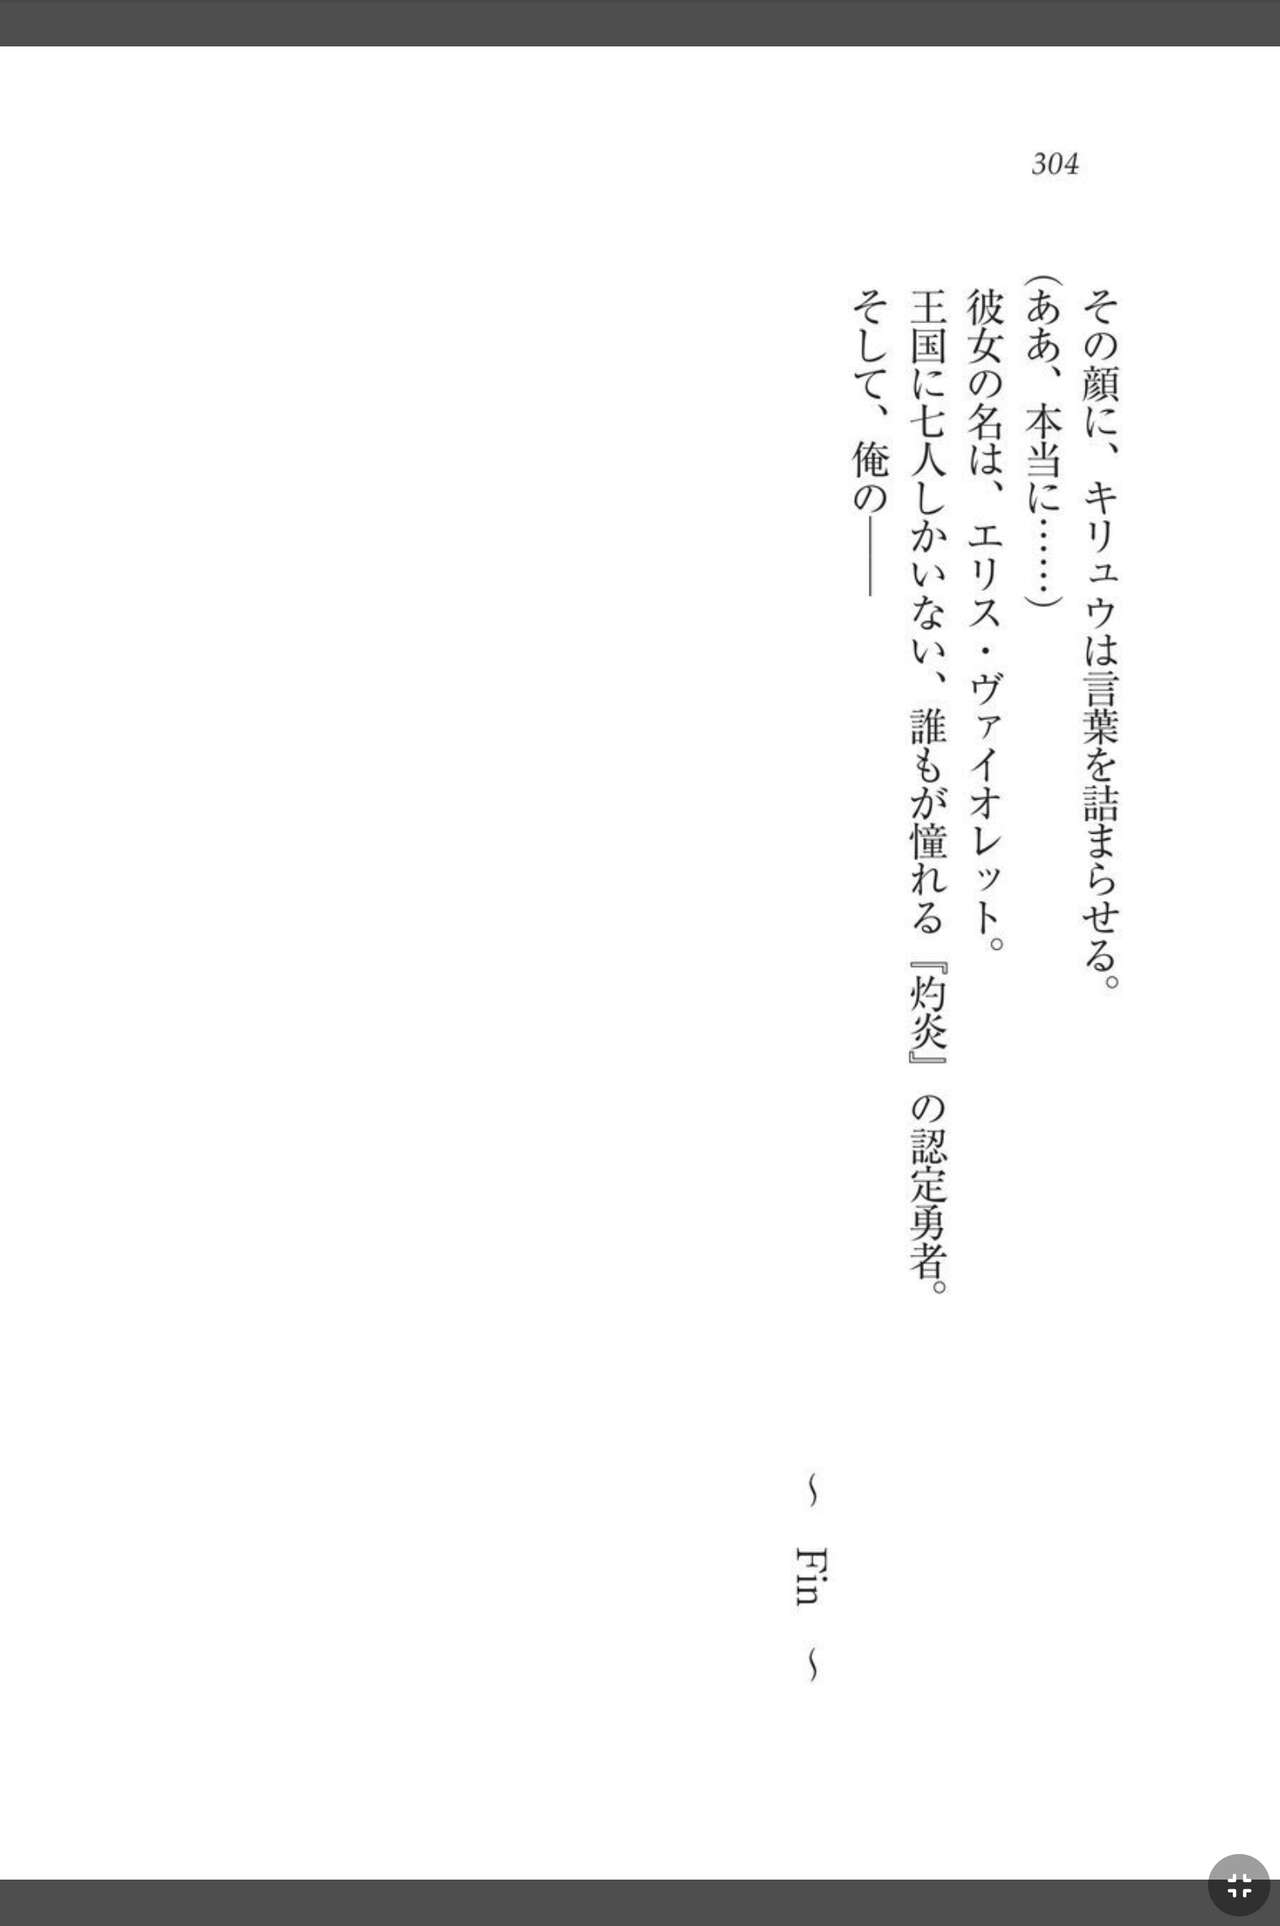 304
その顔に、キリュウは言葉を詰まらせる。
(ああ、本当に……)
彼女の名は、エリス・ヴァイオレット。
王国に七人しかいない、誰もが憧れる『灼炎』の認定勇者。
そして、俺の――
～　Fin　～